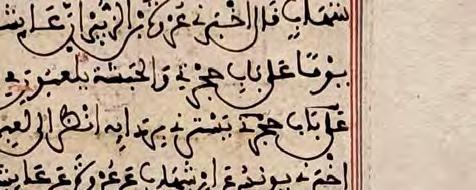 شهاب قال اخبرني عروة بن الزبير ان عايش
يوما على باب حجرتي والحبشة يلعبون في
على باب حجرتي يسترني بردايه انظر الى لعبهم
اخبرني يونس عن ابن شهاب عن عروة عن عايش